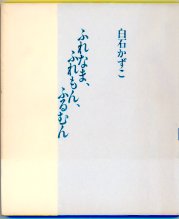 白石かずこ
ふれなま、
ふれもん、
ふるむん